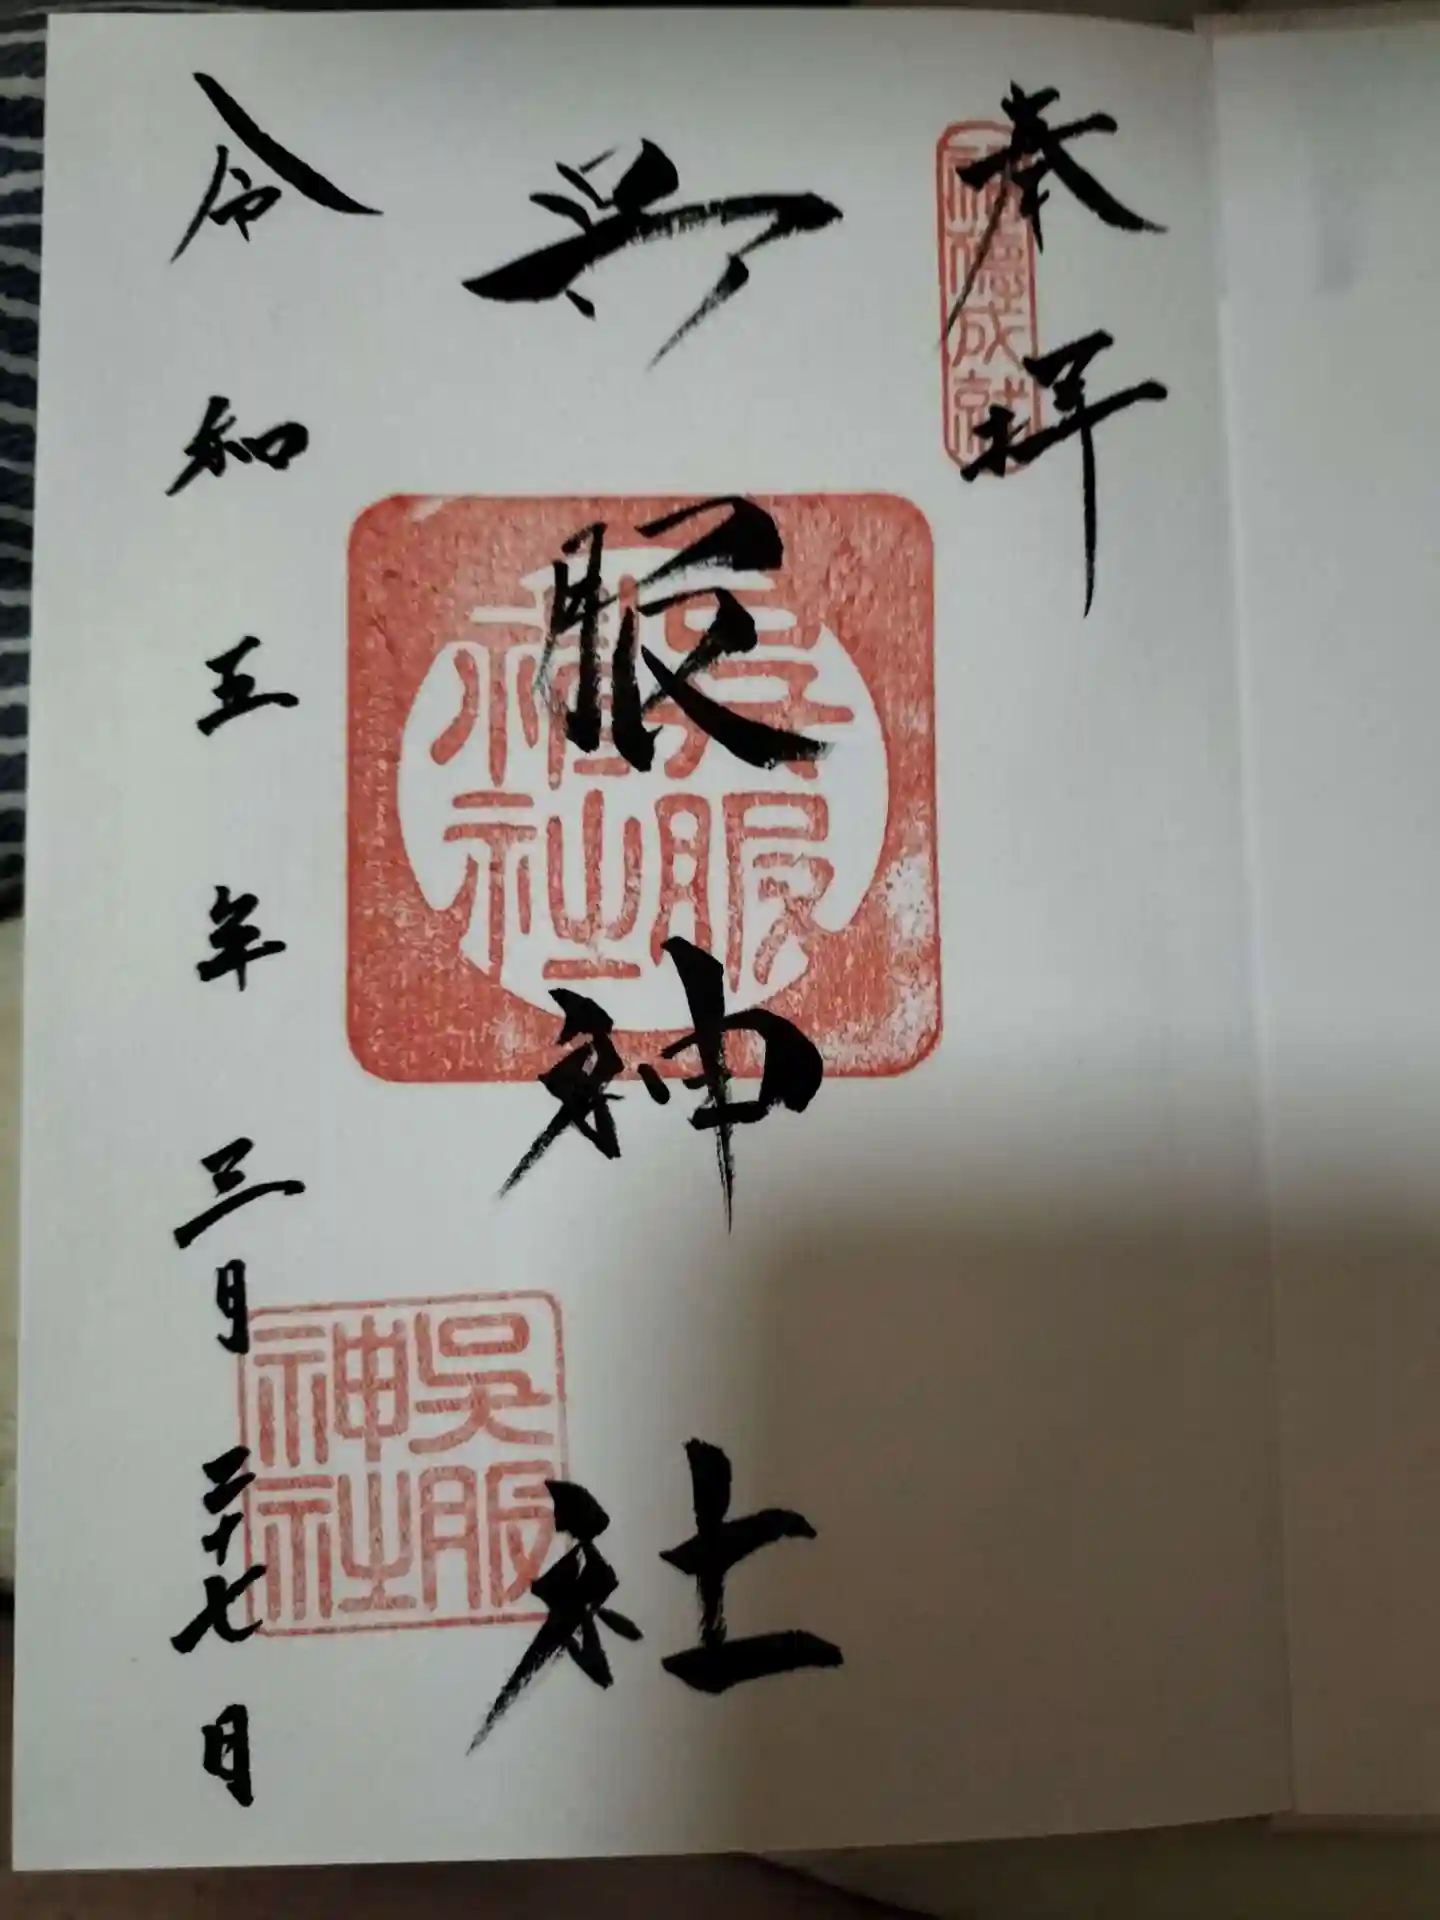 奉拝
福徳成就
呉服神社
呉服神社
呉服神社
令和五年三月二十七日